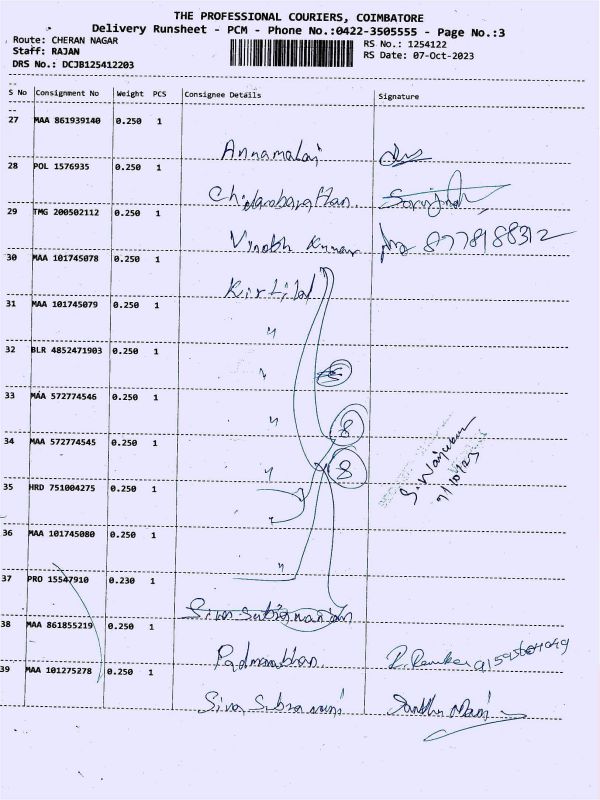 THE PROFESSIONAL COURIERS, COIMBATORE
Delivery Runsheet - PCM - Phone No.:0422-3505555 - Page No.:3
Route: CHERAN NAGAR
RS No.: 1254122
Staff: RAJAN
RS Date: 07-Oct-2023
DRS No.: DCJB125412203
S No Consignment No Weight PCS Consignee Details Signature
27 MAA 861939140 0.250 1
Annamalai
28 POL 1576935 0.250 1
Chidambarathan.
29 TMG 200502112 0.250 1
Vinoth Kumar 8778188312
30 MAA 101745078 0.250 1
Kirtilal
31 MAA 101745079 0.250 1
"
32 BLR 4852471903 0.250 1
"
33 MAA 572774546 0.250 1
" 8
34 MAA 572774545 0.250 1
" 8
35 HRD 751004275 0.250 1
"
36 MAA 101745080 0.250 1
"
7/10/23
37 PRO 15547910 0.230 1
Siva Subramanian
38 MAA 861855219 0.250 1
Padmanabhan.
39 MAA 101275278 0.250 1
Siva Subramani